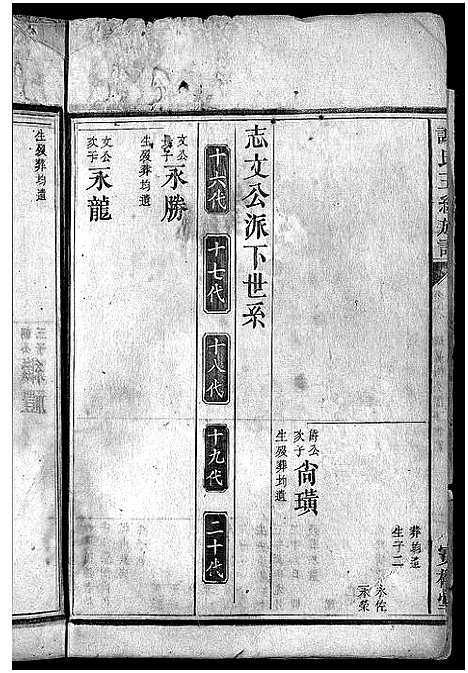 葬均遺
生子二
永佐
永榮
爵公
次子
尚璜
生歿葬均遺
志文公派下世系
十六代
十七代
十八代
十九代
二十代
文公
長子
永勝
生歿葬均遺
文公
次子
永龍
生歿葬均遺